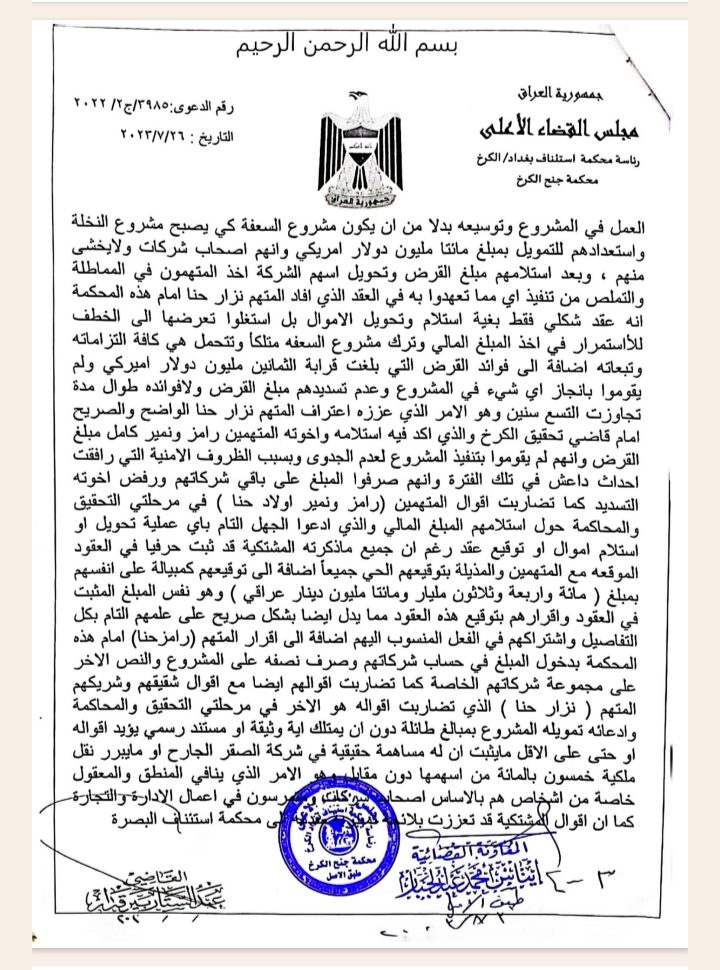 بسم الله الرحمن الرحيم
جمهورية العراق
مجلس القضاء الأعلى
رئاسة محكمة استئناف بغداد/ الكرخ
محكمة جنح الكرخ
رقم الدعوى:٣٩٨٥/ج٢/ ٢٠٢٢
التاريخ : ٢٠٢٣/٧/٢٦
جمهورية العراق
العمل في المشروع وتوسيعه بدلا من ان يكون مشروع السعفة كي يصبح مشروع النخلة
واستعدادهم للتمويل بمبلغ مائتا مليون دولار امريكي وانهم اصحاب شركات ولايخشى
منهم ، وبعد استلامهم مبلغ القرض وتحويل اسهم الشركة اخذ المتهمون في المماطلة
والتملص من تنفيذ اي مما تعهدوا به في العقد الذي افاد المتهم نزار حنا امام هذه المحكمة
انه عقد شكلي فقط بغية استلام وتحويل الاموال بل استغلوا تعرضها الى الخطف
للأستمرار في اخذ المبلغ المالي وترك مشروع السعفه متلكأ وتتحمل هي كافة التزاماته
وتبعاته اضافة الى فوائد القرض التي بلغت قرابة الثمانين مليون دولار اميركي ولم
يقوموا بانجاز اي شيء في المشروع وعدم تسديدهم مبلغ القرض ولافوائده طوال مدة
تجاوزت التسع سنين وهو الامر الذي عززه اعتراف المتهم نزار حنا الواضح والصريح
امام قاضي تحقيق الكرخ والذي اكد فيه استلامه واخوته المتهمين رامز ونمير كامل مبلغ
القرض وانهم لم يقوموا بتنفيذ المشروع لعدم الجدوى وبسبب الظروف الامنية التي رافقت
احداث داعش في تلك الفترة وانهم صرفوا المبلغ على باقي شركاتهم ورفض اخوته
التسديد كما تضاربت اقوال المتهمين (رامز ونمير اولاد حنا ) في مرحلتي التحقيق
والمحاكمة حول استلامهم المبلغ المالي والذي ادعوا الجهل التام باي عملية تحويل او
استلام اموال او توقيع عقد رغم ان جميع ماذكرته المشتكية قد ثبت حرفيا في العقود
الموقعه مع المتهمين والمذيلة بتوقيعهم الحي جميعاً اضافة الى توقيعهم كمبيالة على انفسهم
بمبلغ ( مائة واربعة وثلاثون مليار ومائتا مليون دينار عراقي ) وهو نفس المبلغ المثبت
في العقود واقرارهم بتوقيع هذه العقود مما يدل ايضا بشكل صريح على علمهم التام بكل
التفاصيل واشتراكهم في الفعل المنسوب اليهم اضافة الى اقرار المتهم (رامزحنا) امام هذه
المحكمة بدخول المبلغ في حساب شركاتهم وصرف نصفه على المشروع والنص الاخر
على مجموعة شركاتهم الخاصة كما تضاربت اقوالهم ايضا مع اقوال شقيقهم وشريكهم
المتهم ( نزار حنا ) الذي تضاربت اقواله هو الاخر في مرحلتي التحقيق والمحاكمة
وادعائه تمويله المشروع بمبالغ طائلة دون ان يمتلك اية وثيقة او مستند رسمي يؤيد اقواله
او حتى على الاقل مايثبت ان له مساهمة حقيقية في شركة الصقر الجارح او مايبرر نقل
ملكية خمسون بالمائة من اسهمها دون مقابل وهو الامر الذي ينافي المنطق والمعقول
خاصة من اشخاص هم بالاساس اصحاب شركات ومتمرسون في اعمال الادارة والتجارة
كما ان اقوال المشتكية قد تعززت الى محكمة استئناف البصرة
محكمة جنح الكرخ
طبق الاصل
المعاونة القضائية
طبق الاصل
٣ - ٤
القاضي
عبد الستار بيرقدار